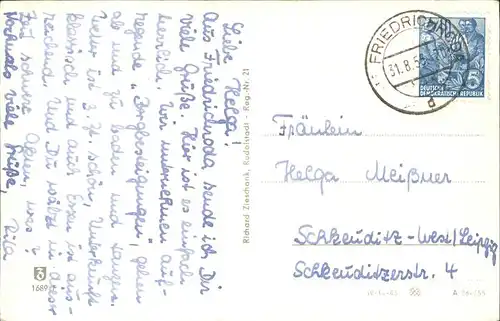 Liebe Helga!
Aus Friedrichroda sende ich Dir
viele Grüße. Hier ist es einfach
herrlich. Wir unternehmen auf-
regende „Bergbesteigungen", gehen
ab und zu baden und tanzen.
Wetter ist z. Zt. schön, Unterkunft
klassisch und auch Essen ist aus-
reichend. Und Du wälzt in dieser
Zeit schwere Akten, was?
Nochmals viele Grüße,
Rita
Richard Zieschank, Rudolstadt - Reg.-Nr. 21
FRIEDRICHRODA
31.8.5
d
DEUTSCHE
DEMOKRATISCHE REPUBLIK
5
Fräulein
Helga Meißner
Schkeuditz-West/Leipzig
Schkeuditzerstr. 4
1689